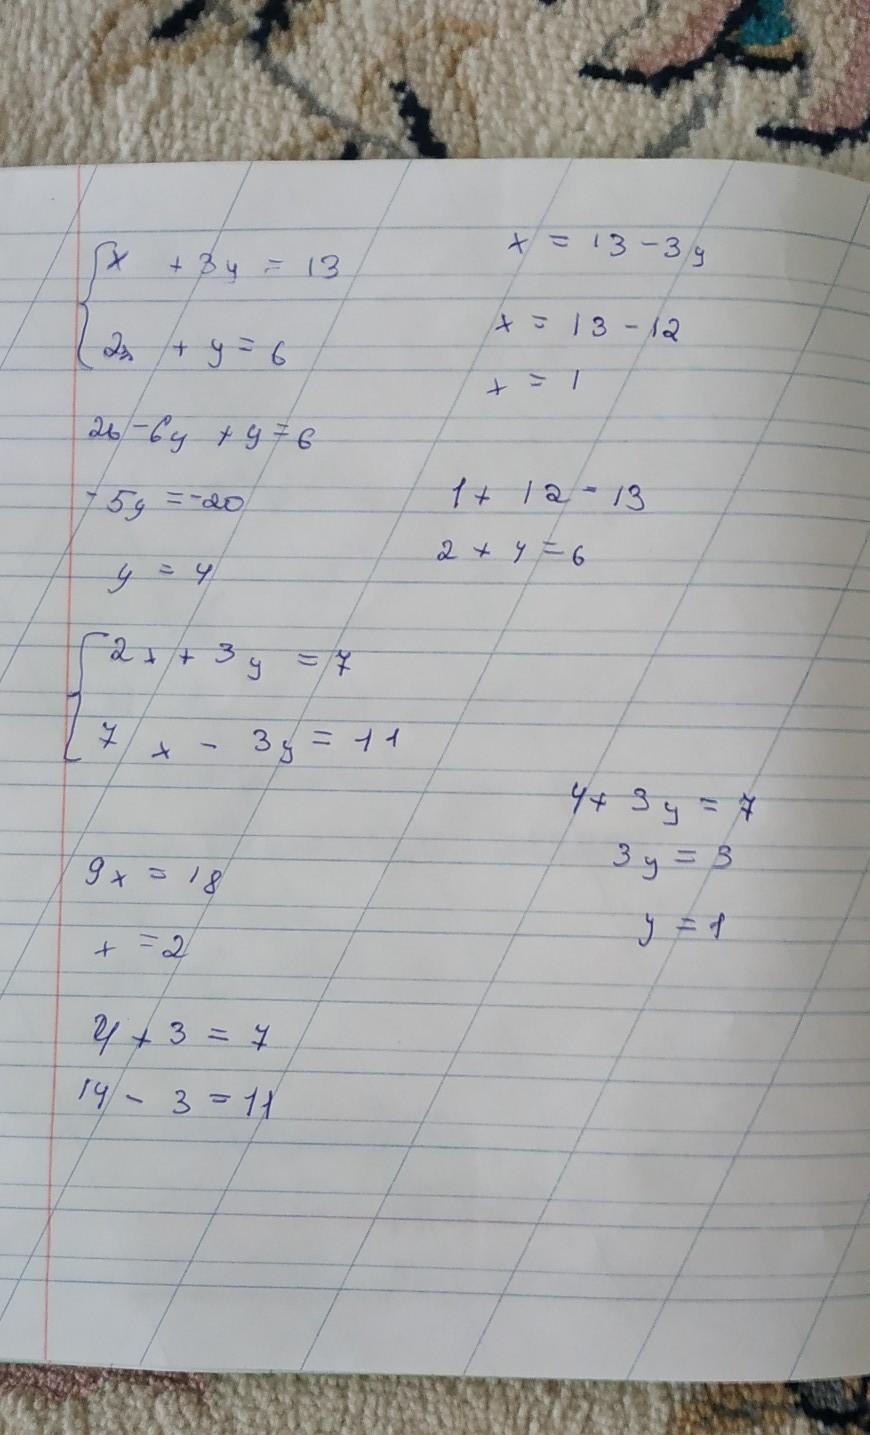 x + 3y = 13
2x + y = 6
26 - 6y + y = 6
-5y = -20
y = 4
x = 13 - 3y
x = 13 - 12
x = 1
1 + 12 = 13
2 + 4 = 6
2x + 3y = 7
7x - 3y = 11
9x = 18
x = 2
4 + 3 = 7
14 - 3 = 11
4 + 3y = 7
3y = 3
y = 1